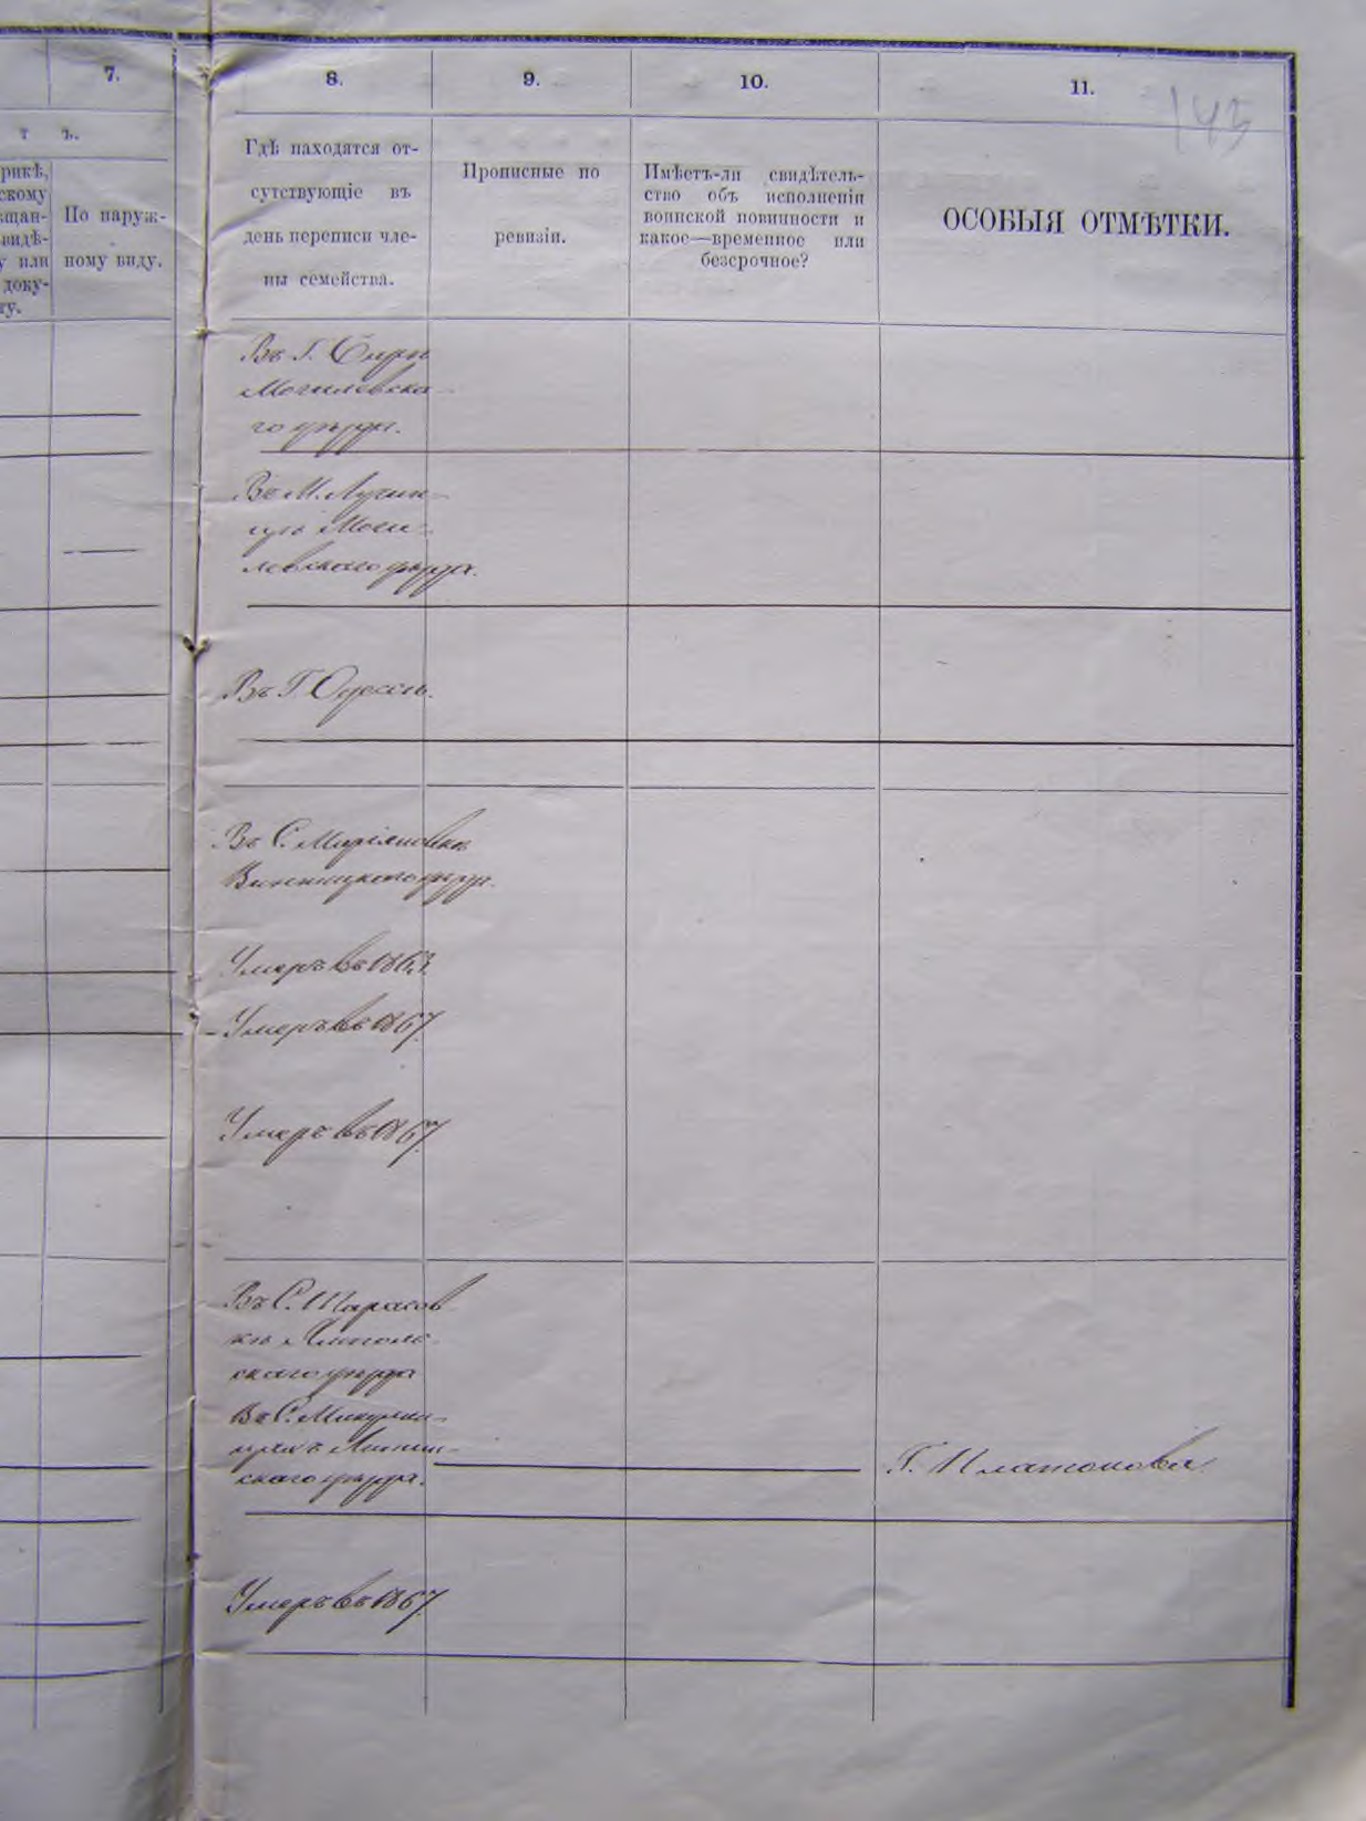 7.
8.
9.
10.
11.
143
т ъ.
рикѣ,
скому
ѣщан-
видѣ-
у или
доку-
ту.
По наруж-
ному виду.
Гдѣ находятся от-
сутствующіе въ
день переписи чле-
ны семейства.
Прописные по
ревизіи.
Имѣетъ-ли свидѣтель-
ство объ исполненіи
воинской повинности и
какое—временное или
безсрочное?
ОСОБЫЯ ОТМѢТКИ.
Въ Г.
Могилевска-
го уѣзда.
Въ М. Лучин-
цѣ Моги-
левскаго уѣзда.
Въ Г. Одессѣ.
Въ С.
Винницкаго уѣзда.
Умеръ въ 1863.
Умеръ въ 1867.
Умеръ въ 1867.
Въ С. Тарасов
кѣ Ямполь-
скаго уѣзда
Въ С.
скаго уѣзда.
Г. Платонова
Умеръ въ 1867.